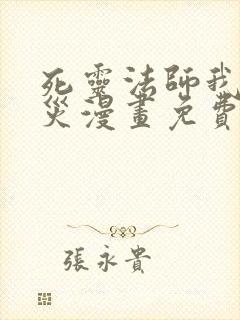 死靈法師我
災漫畫免費
張永貴